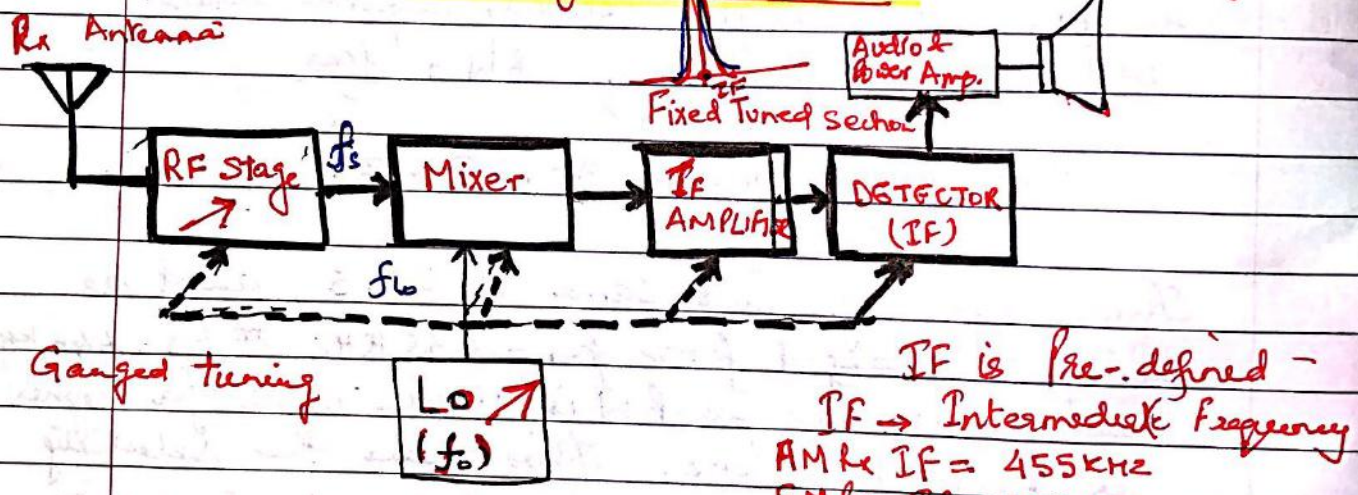 Rx Antenna
Audio &
Power Amp.
IF
Fixed Tuned Section
RF Stage
fs
Mixer
IF
AMPLIFIER
DETECTOR
(IF)
fLo
Ganged tuning
Lo
(fo)
IF is Pre-defined -
IF → Intermediate Frequency
AM Rx IF = 455 KHz